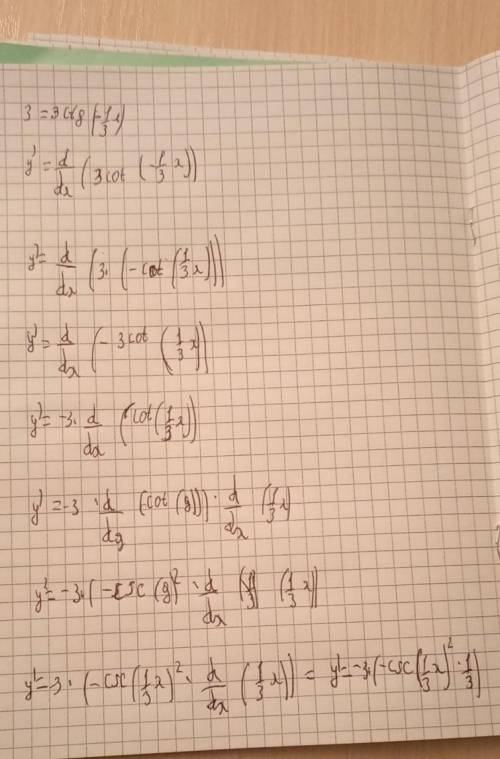 3 = 3 ctg (-1/3 x)
y' = d/dx (3 cot (-1/3 x))
y' = d/dx (3· (-cot (1/3 x)))
y' = d/dx (- 3 cot (1/3 x))
y' = -3· d/dx (cot (1/3 x))
y' = -3 · d/dg (cot (g))) · d/dx (1/3 x)
y' = -3·(-csc (g)² · d/dx (1/3 x))
y' = 3 · (-csc (1/3 x)² · d/dx (1/3 x)) = y' = -3·(-csc (1/3 x)² · 1/3)